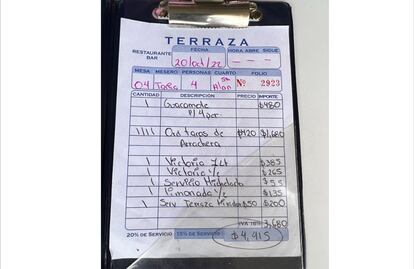 TERRAZA
RESTAURANTE BAR
FECHA
HORA ABRE SIGUE
20/oct/22
MESA MESERO PERSONAS CUARTO FOLIO
04 4 Nº 2923
CANTIDAD DESCRIPCIÓN PRECIO IMPORTE
1 Guacamole $480
P/4 per
1111 Ord tacos de $420 $1,680
Arrachera
1 Victoria Lt $385
1 Victoria 1/2 $265
1 Servicio Michelado $55
1 limonada 1/2 $135
1 Serv Terraza $50 $200
IVA 16% 3,680
20% DE SERVICIO 15% DE SERVICIO $4,415